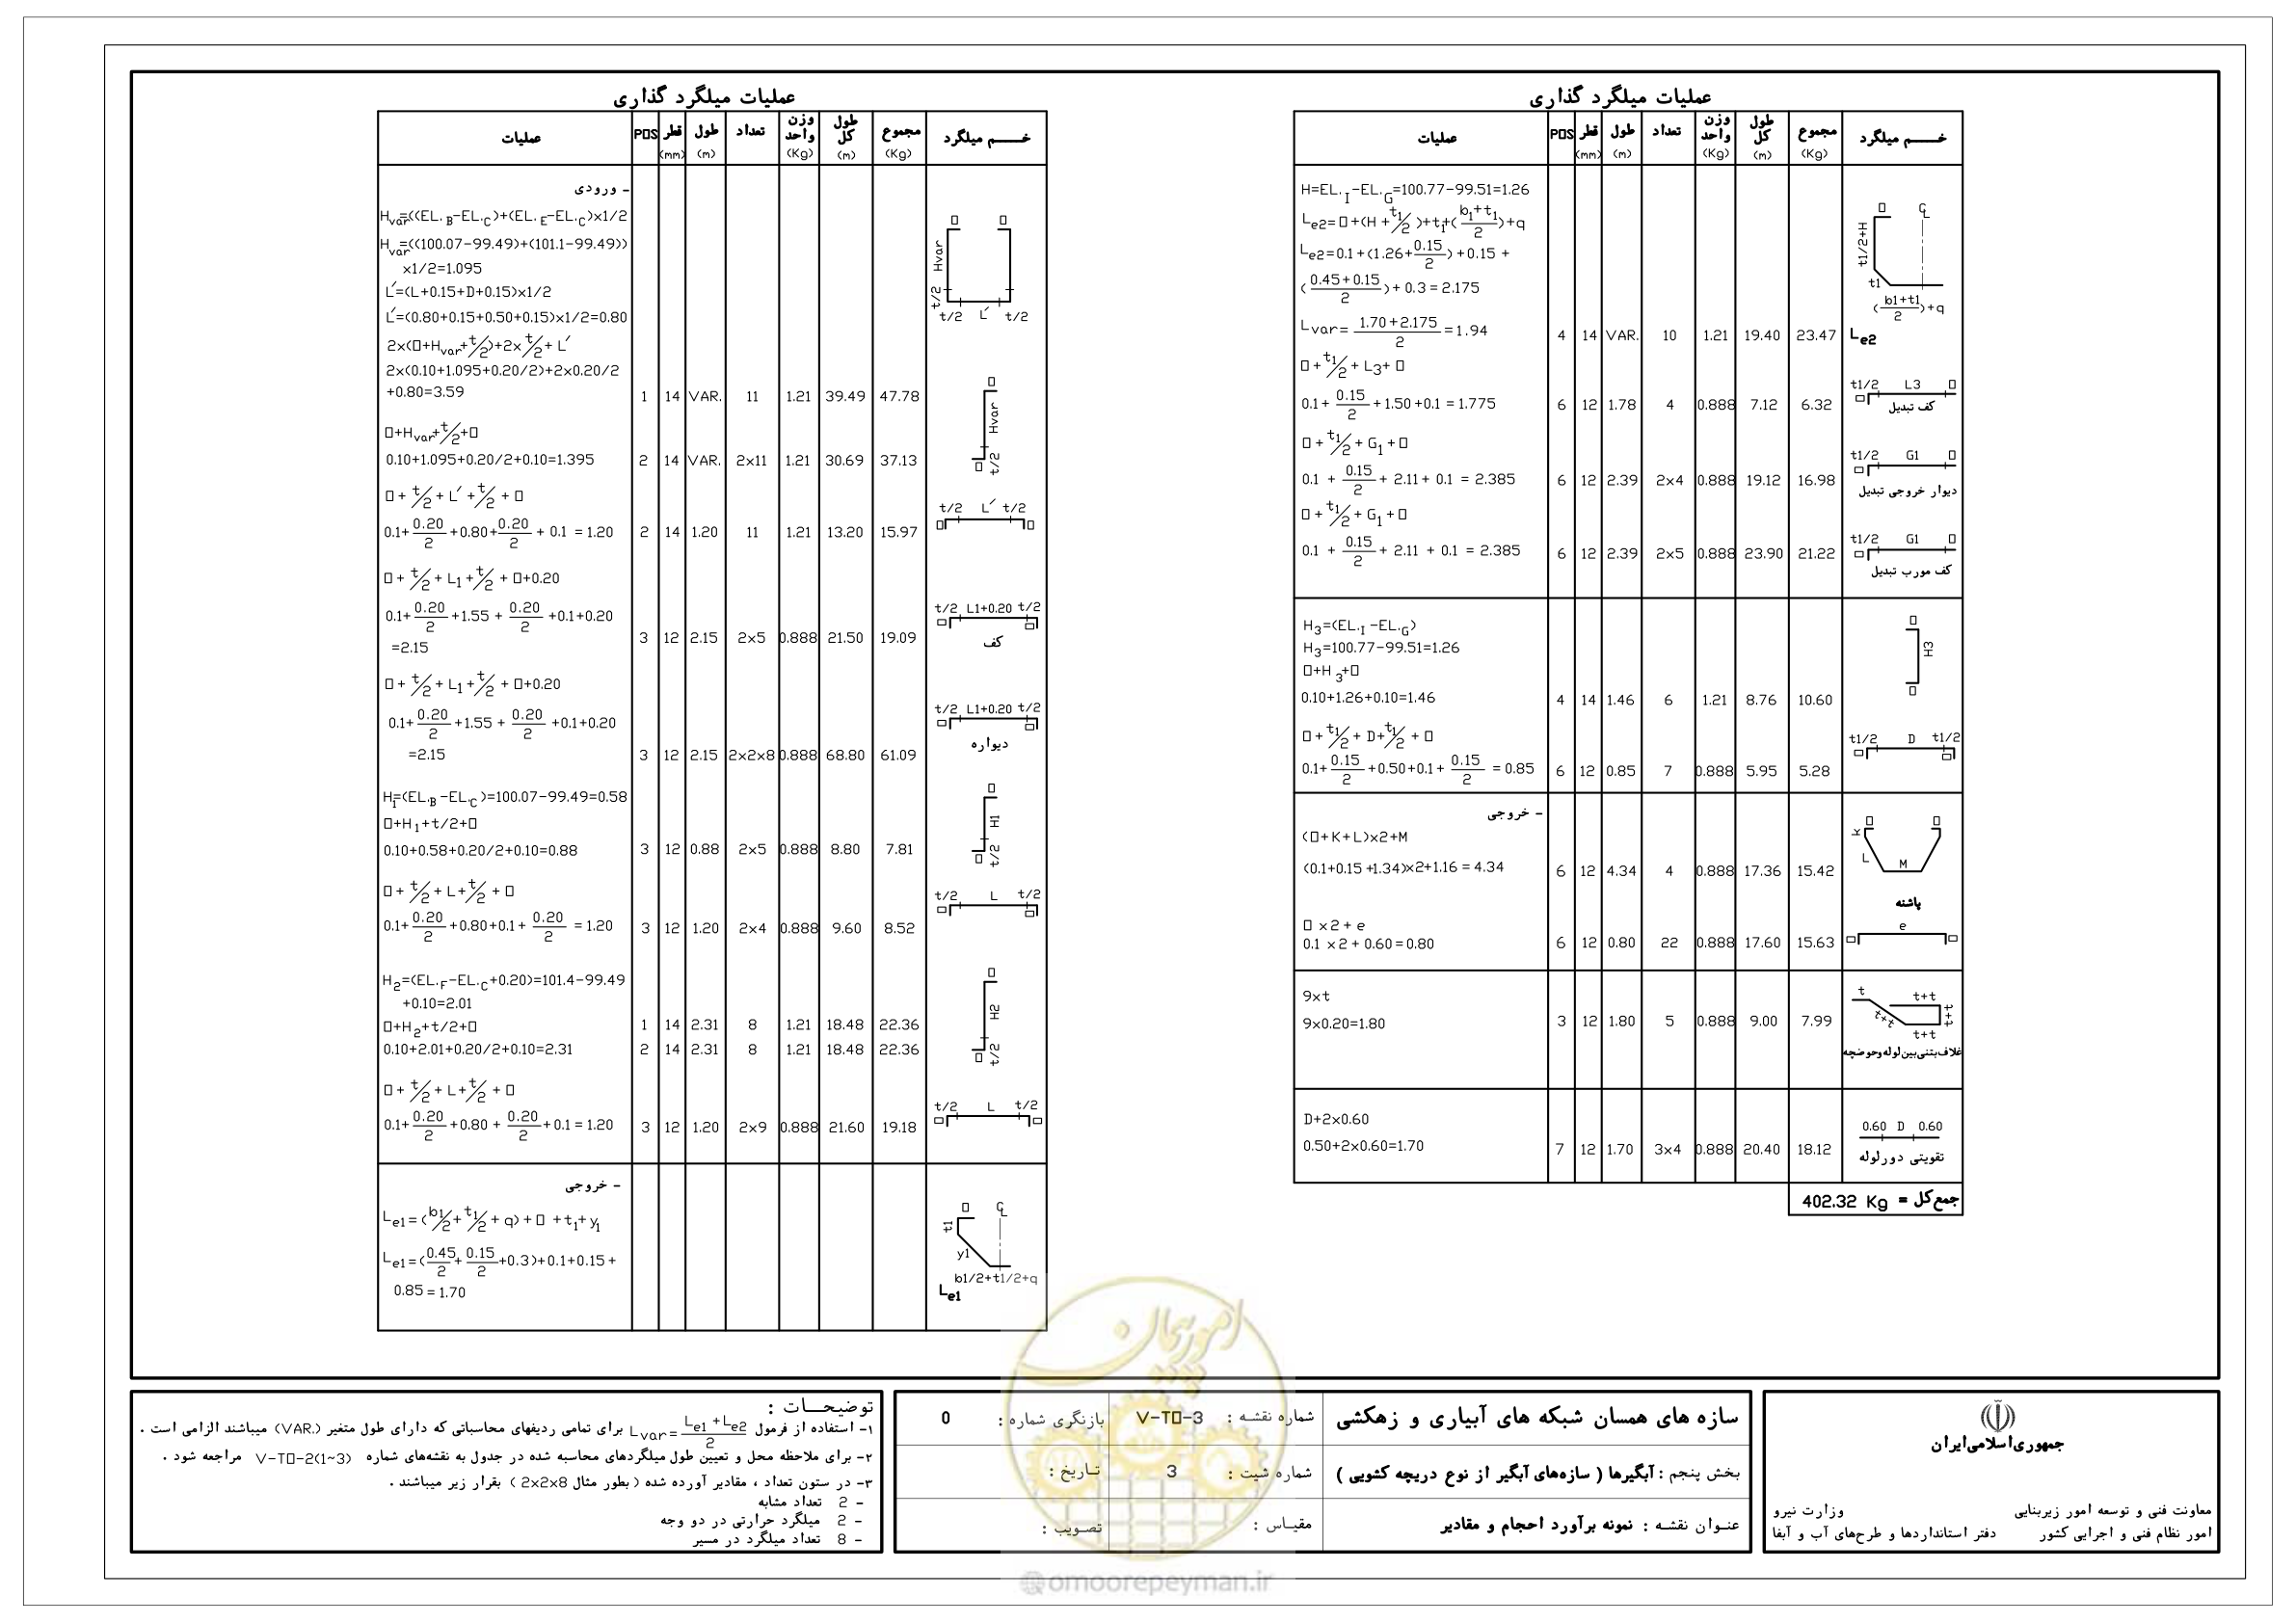 عملیات میلگرد گذاری
عملیات POS قطر (mm) طول (m) تعداد وزن واحد (Kg) طول کل (m) مجموع (Kg) خـــم میلگرد
- ورودی
Hvar=((EL.B-EL.C)+(EL.E-EL.C)x1/2
Hvar=((100.07-99.49)+(101.1-99.49))
x1/2=1.095
L´=(L+0.15+D+0.15)x1/2
L´=(0.80+0.15+0.50+0.15)x1/2=0.80
2x(▯+Hvar+t/2)+2x t/2+ L´
2x(0.10+1.095+0.20/2)+2x0.20/2
+0.80=3.59 1 14 VAR. 11 1.21 39.49 47.78
▯ ▯ Hvar t/2 t/2 L´ t/2
▯+Hvar+t/2+▯
0.10+1.095+0.20/2+0.10=1.395 2 14 VAR. 2x11 1.21 30.69 37.13
▯ Hvar ▯ t/2
▯ + t/2 + L´ + t/2 + ▯
0.1+ 0.20/2 +0.80+ 0.20/2 + 0.1 = 1.20 2 14 1.20 11 1.21 13.20 15.97
t/2 L´ t/2 ▯ ▯
▯ + t/2 + L1 + t/2 + ▯+0.20
0.1+ 0.20/2 +1.55 + 0.20/2 +0.1+0.20
=2.15 3 12 2.15 2x5 0.888 21.50 19.09
t/2 L1+0.20 t/2 ▯ ▯
کف
▯ + t/2 + L1 + t/2 + ▯+0.20
0.1+ 0.20/2 +1.55 + 0.20/2 +0.1+0.20
=2.15 3 12 2.15 2x2x8 0.888 68.80 61.09
t/2 L1+0.20 t/2 ▯ ▯
دیواره
H1=(EL.B-EL.C)=100.07-99.49=0.58
▯+H1+t/2+▯
0.10+0.58+0.20/2+0.10=0.88 3 12 0.88 2x5 0.888 8.80 7.81
▯ H1 ▯ t/2
▯ + t/2 + L+ t/2 + ▯
0.1+ 0.20/2 +0.80+0.1+ 0.20/2 = 1.20 3 12 1.20 2x4 0.888 9.60 8.52
t/2 L t/2 ▯ ▯
H2=(EL.F-EL.C+0.20)=101.4-99.49
+0.10=2.01
▯+H2+t/2+▯ 1 14 2.31 8 1.21 18.48 22.36
0.10+2.01+0.20/2+0.10=2.31 2 14 2.31 8 1.21 18.48 22.36
▯ H2 ▯ t/2
▯ + t/2 + L+ t/2 + ▯
0.1+ 0.20/2 +0.80 + 0.20/2 +0.1 = 1.20 3 12 1.20 2x9 0.888 21.60 19.18
t/2 L t/2 ▯ ▯
- خروجی
Le1 = (b1/2 + t1/2 + q) + ▯ + t1+ y1
Le1 = ( 0.45/2 + 0.15/2 +0.3)+0.1+0.15 +
0.85 = 1.70
▯ CL t1 y1 b1/2+t1/2+q
Le1
عملیات میلگرد گذاری
عملیات POS قطر (mm) طول (m) تعداد وزن واحد (Kg) طول کل (m) مجموع (Kg) خـــم میلگرد
H=EL.I-EL.G=100.77-99.51=1.26
Le2= ▯ +(H + t1/2 )+t1+( b1+t1/2 )+q
Le2=0.1 + (1.26+ 0.15/2 ) + 0.15 +
( 0.45+0.15/2 )+ 0.3 = 2.175
Lvar= 1.70+2.175/2 = 1.94 4 14 VAR. 10 1.21 19.40 23.47
▯ CL t1/2+H t1 ( b1+t1/2 )+q
Le2
▯ + t1/2 + L3+ ▯
0.1+ 0.15/2 + 1.50 +0.1 = 1.775 6 12 1.78 4 0.888 7.12 6.32
t1/2 L3 ▯ ▯
کف تبدیل
▯ + t1/2 + G1 + ▯
0.1 + 0.15/2 + 2.11+ 0.1 = 2.385 6 12 2.39 2x4 0.888 19.12 16.98
t1/2 G1 ▯ ▯
دیوار خروجی تبدیل
▯ + t1/2 + G1 + ▯
0.1 + 0.15/2 + 2.11 + 0.1 = 2.385 6 12 2.39 2x5 0.888 23.90 21.22
t1/2 G1 ▯ ▯
کف مورب تبدیل
H3=(EL.I -EL.G)
H3=100.77-99.51=1.26
▯+H3+▯
0.10+1.26+0.10=1.46 4 14 1.46 6 1.21 8.76 10.60
▯ H3 ▯
▯ + t1/2 + D+ t1/2 + ▯
0.1+ 0.15/2 +0.50+0.1+ 0.15/2 = 0.85 6 12 0.85 7 0.888 5.95 5.28
t1/2 D t1/2 ▯ ▯
- خروجی
(▯+K+L)x2+M
(0.1+0.15 +1.34)x2+1.16 = 4.34 6 12 4.34 4 0.888 17.36 15.42
▯ ▯ K L M
پاشنه
▯ x2 + e
0.1 x2 + 0.60 = 0.80 6 12 0.80 22 0.888 17.60 15.63
e ▯ ▯
9xt
9x0.20=1.80 3 12 1.80 5 0.888 9.00 7.99
t t+t t+t t+t t+t
غلاف بتنی بین لوله وحوضچه
D+2x0.60
0.50+2x0.60=1.70 7 12 1.70 3x4 0.888 20.40 18.12
0.60 D 0.60
تقویتی دورلوله
جمع کل = 402.32 Kg
توضیحـــات :
۱- استفاده از فرمول Lvar= Le1+Le2/2 برای تمامی ردیفهای محاسباتی که دارای طول متغیر (.VAR) میباشند الزامی است .
۲- برای ملاحظه محل و تعیین طول میلگردهای محاسبه شده در جدول به نقشه‌های شماره V-TO-2(1~3) مراجعه شود .
۳- در ستون تعداد ، مقادیر آورده شده ( بطور مثال 2x2x8 ) بقرار زیر میباشند .
- 2 تعداد مشابه
- 2 میلگرد حرارتی در دو وجه
- 8 تعداد میلگرد در مسیر
سازه های همسان شبکه های آبیاری و زهکشی
شماره نقشـه : V-TO-3
بازنگری شماره : 0
بخش پنجم : آبگیرها ( سازه‌های آبگیر از نوع دریچه کشویی )
شماره شیت : 3
تاریخ :
عنـوان نقشـه : نمونه برآورد احجام و مقادیر
مقیـاس :
تصـویب :
جمهوری‌اسلامی‌ایران
معاونت فنی و توسعه امور زیربنایی
امور نظام فنی و اجرایی کشور
وزارت نیرو
دفتر استانداردها و طرح‌های آب و آبفا
امور پیمان
@omoorepeyman.ir